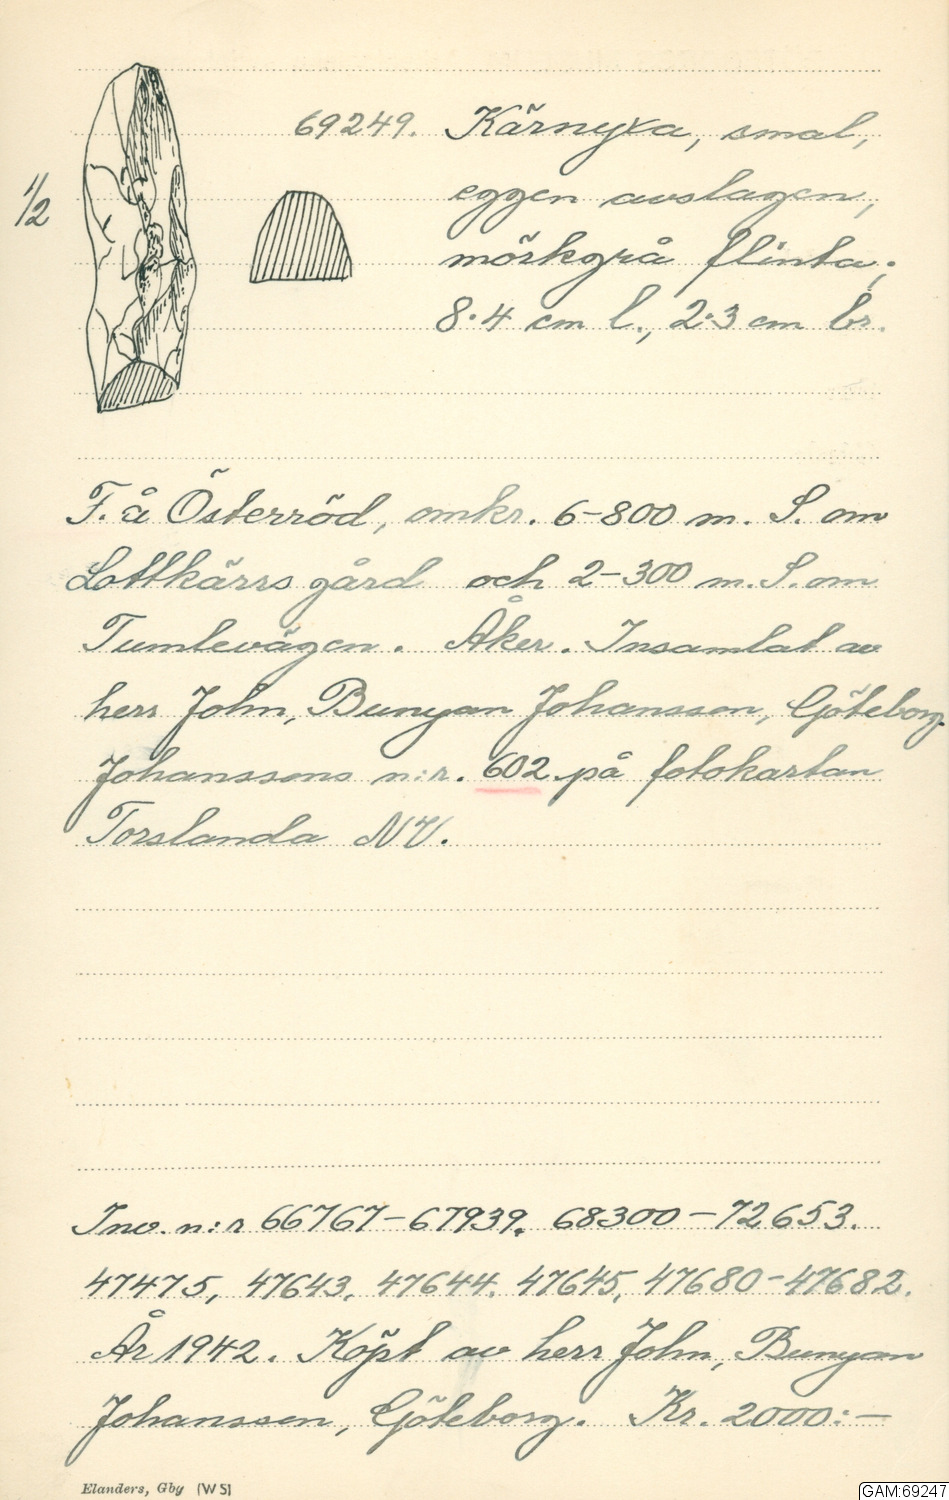 69249. Kärnyxa, smal,
eggen avslagen,
1/2
mörkgrå flinta;
8.4 cm l., 2.3 cm br.
F. å Österröd, omkr. 6-800 m. S. om
Lottkärrs gård och 2-300 m. S. om
Tumlevägen. Åker. Insamlat av
herr John, Bunyan Johansson, Göteborg
Johanssons n:r. 602 på fotokartan
Torslanda NV.
Inv. n:r 66767-67939. 68300-72653.
47475, 47643, 47644. 47645, 47680-47682.
År 1942. Köpt av herr John, Bunyan
Johansson, Göteborg. Kr. 2000:-
Elanders, Gby (W5)
GAM:69247